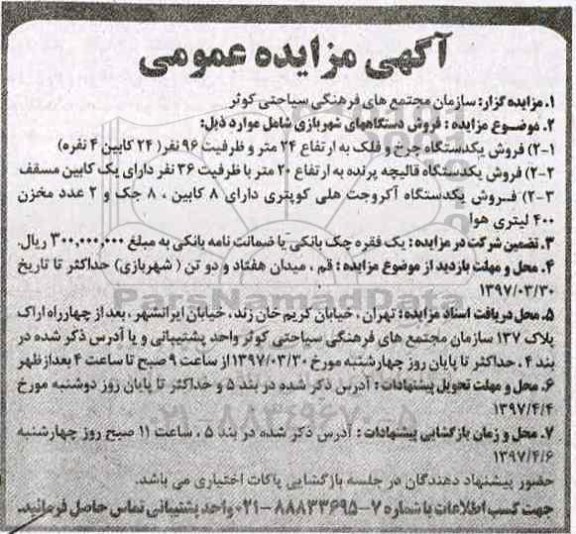 آگهی مزایده عمومی
۱. مزایده گزار: سازمان مجتمع های فرهنگی سیاحتی کوثر
۲. موضوع مزایده : فروش دستگاههای شهربازی شامل موارد ذیل:
۲-۱) فروش یکدستگاه چرخ و فلک به ارتفاع ۲۴ متر و ظرفیت ۹۶ نفر( ۲۴ کابین ۴ نفره)
۲-۲) فروش یکدستگاه قالیچه پرنده به ارتفاع ۲۰ متر با ظرفیت ۳۶ نفر دارای یک کابین مسقف
۲-۳) فروش یکدستگاه آکروجت هلی کوپتری دارای ۸ کابین ، ۸ جک و ۲ عدد مخزن
۴۰۰ لیتری هوا
۳. تضمین شرکت در مزایده : یک فقره چک بانکی یا ضمانت نامه بانکی به مبلغ ۳۰۰,۰۰۰,۰۰۰ ریال.
۴. محل و مهلت بازدید از موضوع مزایده : قم ، میدان هفتاد و دو تن ( شهربازی) حداکثر تا تاریخ
۱۳۹۷/۰۳/۳۰
ParsNamadData
۵. محل دریافت اسناد مزایده : تهران ، خیابان کریم خان زند، خیابان ایرانشهر ، بعد از چهارراه اراک
پلاک ۱۳۷ سازمان مجتمع های فرهنگی سیاحتی کوثر واحد پشتیبانی و یا آدرس ذکر شده در
بند ۴ ، حداکثر تا پایان روز چهارشنبه مورخ ۱۳۹۷/۰۳/۳۰ از ساعت ۹ صبح تا ساعت ۴ بعدازظهر
۶. محل و مهلت تحویل پیشنهادات : آدرس ذکر شده در بند ۵ و حداکثر تا پایان روز دوشنبه مورخ
۱۳۹۷/۴/۴
۰۲۱-۸۸۳۴۹۶۷۰-۵
۷. محل و زمان بازگشایی پیشنهادات : آدرس ذکر شده در بند ۵ ، ساعت ۱۱ صبح روز چهارشنبه
۱۳۹۷/۴/۶
حضور پیشنهاد دهندگان در جلسه بازگشایی پاکات اختیاری می باشد.
جهت کسب اطلاعات با شماره ۷-۸۸۸۳۳۶۹۵-۰۲۱ واحد پشتیبانی تماس حاصل فرمائید.